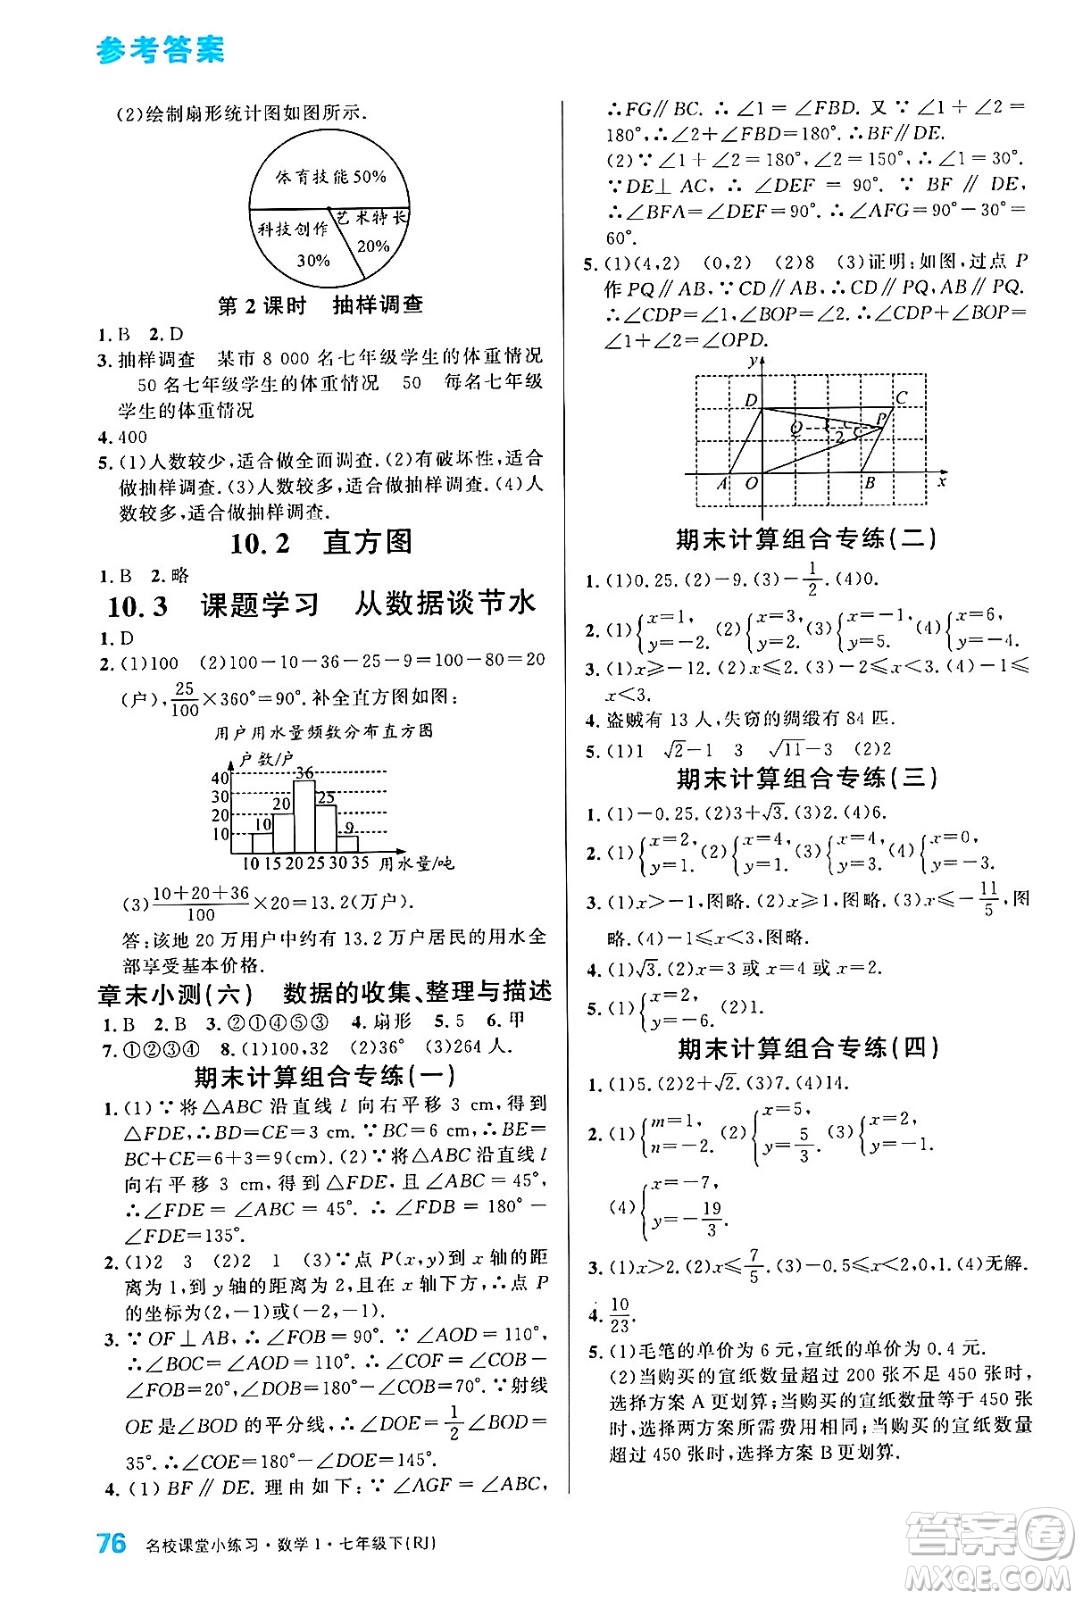 参考答案
(2)绘制扇形统计图如图所示.
体育技能50%
科技创作
30%
艺术特长
20%
第 2 课时　抽样调查
1. B　2. D
3. 抽样调查　某市 8 000 名七年级学生的体重情况
50 名七年级学生的体重情况　50　每名七年级
学生的体重情况
4. 400
5. (1)人数较少,适合做全面调查.(2)有破坏性,适合
做抽样调查.(3)人数较多,适合做抽样调查.(4)人
数较多,适合做抽样调查.
10. 2　直方图
1. B　2. 略
10. 3　课题学习　从数据谈节水
1. D
2. (1)100　(2)100－10－36－25－9＝100－80＝20
(户), 25/100×360°＝90°. 补全直方图如图:
用户用水量频数分布直方图
户数/户
40
30
20
10
10
20
36
25
9
10 15 20 25 30 35 用水量/吨
(3) (10＋20＋36)/100 ×20＝13.2(万户).
答:该地 20 万用户中约有 13.2 万户居民的用水全
部享受基本价格.
章末小测(六)　数据的收集、整理与描述
1. B　2. B　3. ②①④⑤③　4. 扇形　5. 5　6. 甲
7. ①②③④　8. (1)100,32　(2)36°　(3)264 人.
期末计算组合专练(一)
1. (1)∵将△ABC 沿直线 l 向右平移 3 cm,得到
△FDE,∴BD＝CE＝3 cm. ∵BC＝6 cm,∴BE＝
BC＋CE＝6＋3＝9(cm). (2)∵将△ABC 沿直线 l
向右平移 3 cm,得到△FDE,∠ABC＝45°,
∴∠FDE＝∠ABC＝45°. ∴∠FDB＝180°－
∠FDE＝135°.
2. (1)2　3　(2)2　1　(3)∵点 P(x,y)到 x 轴的距
离为 1,到 y 轴的距离为 2,且在 x 轴下方,∴点 P
的坐标为(2,－1)或(－2,－1).
3. ∵OF⊥AB,∴∠FOB＝90°. ∵∠AOD＝110°,
∴∠BOC＝∠AOD＝110°. ∴∠COF＝∠COB－
∠FOB＝20°,∠BOD＝180°－∠COB＝70°. ∵射线
OE 是∠BOD 的平分线,∴∠DOE＝1/2∠BOD＝
35°. ∴∠COE＝180°－∠DOE＝145°.
4. (1)BF∥DE. 理由如下:∵∠AGF＝∠ABC,
∴FG∥BC. ∴∠1＝∠FBD. 又∵∠1＋∠2＝
180°,∴∠2＋∠FBD＝180°. ∴BF∥DE.
(2)∵∠1＋∠2＝180°,∠2＝150°,∴∠1＝30°.
∵DE⊥AC,∴∠DEF＝90°. ∵BF∥DE,
∴∠BFA＝∠DEF＝90°. ∴∠AFG＝90°－30°＝
60°.
5. (1)(4,2)　(0,2)　(2)8　(3)证明:如图,过点 P
作 PQ∥AB,∵CD∥AB,∴CD∥PQ,AB∥PQ.
∴∠CDP＝∠1,∠BOP＝∠2. ∴∠CDP＋∠BOP＝
∠1＋∠2＝∠OPD.
y
D
C
Q
P
2
A
O
B
x
期末计算组合专练(二)
1. (1)0.25. (2)－9. (3)－1/2. (4)0.
2. (1){x＝1, y＝－2. (2){x＝3, y＝2. (3){x＝－1, y＝5. (4){x＝6, y＝－4.
3. (1)x≥－12. (2)x≤2. (3)－2≤x＜3. (4)－1≤
x＜3.
4. 盗贼有 13 人,失窃的绸缎有 84 匹.
5. (1)1　√2－1　3　√11－3　(2)2
期末计算组合专练(三)
1. (1)－0.25. (2)3＋√3. (3)2. (4)6.
2. (1){x＝2, y＝1. (2){x＝4, y＝1. (3){x＝4, y＝1. (4){x＝0, y＝－3.
3. (1)x＞－1,图略. (2)x≥1,图略. (3)x≤－11/5,图
略. (4)－1≤x＜3,图略.
4. (1)√3. (2)x＝4 或 x＝－2. (3)x＝2.
5. (1){x＝2, y＝－6. (2)1.
期末计算组合专练(四)
1. (1)5. (2)2＋√2. (3)7. (4)14.
2. (1){m＝1, n＝－2. (2){x＝5, y＝5/3. (3){x＝2, y＝－1.
(4){x＝－7, y＝－19/3.
3. (1)x＞2. (2)x≤7/5. (3)－0.5≤x＜2,0,1. (4)无解.
4. 10/23.
5. (1)毛笔的单价为 6 元,宣纸的单价为 0.4 元.
(2)当购买的宣纸数量超过 200 张不足 450 张时,
选择方案 A 更划算;当购买的宣纸数量等于 450 张
时,选择两方案所需费用相同;当购买的宣纸数量
超过 450 张时,选择方案 B 更划算.
76 名校课堂小练习·数学 1·七年级下(RJ)
答案圈
MXQE.COM